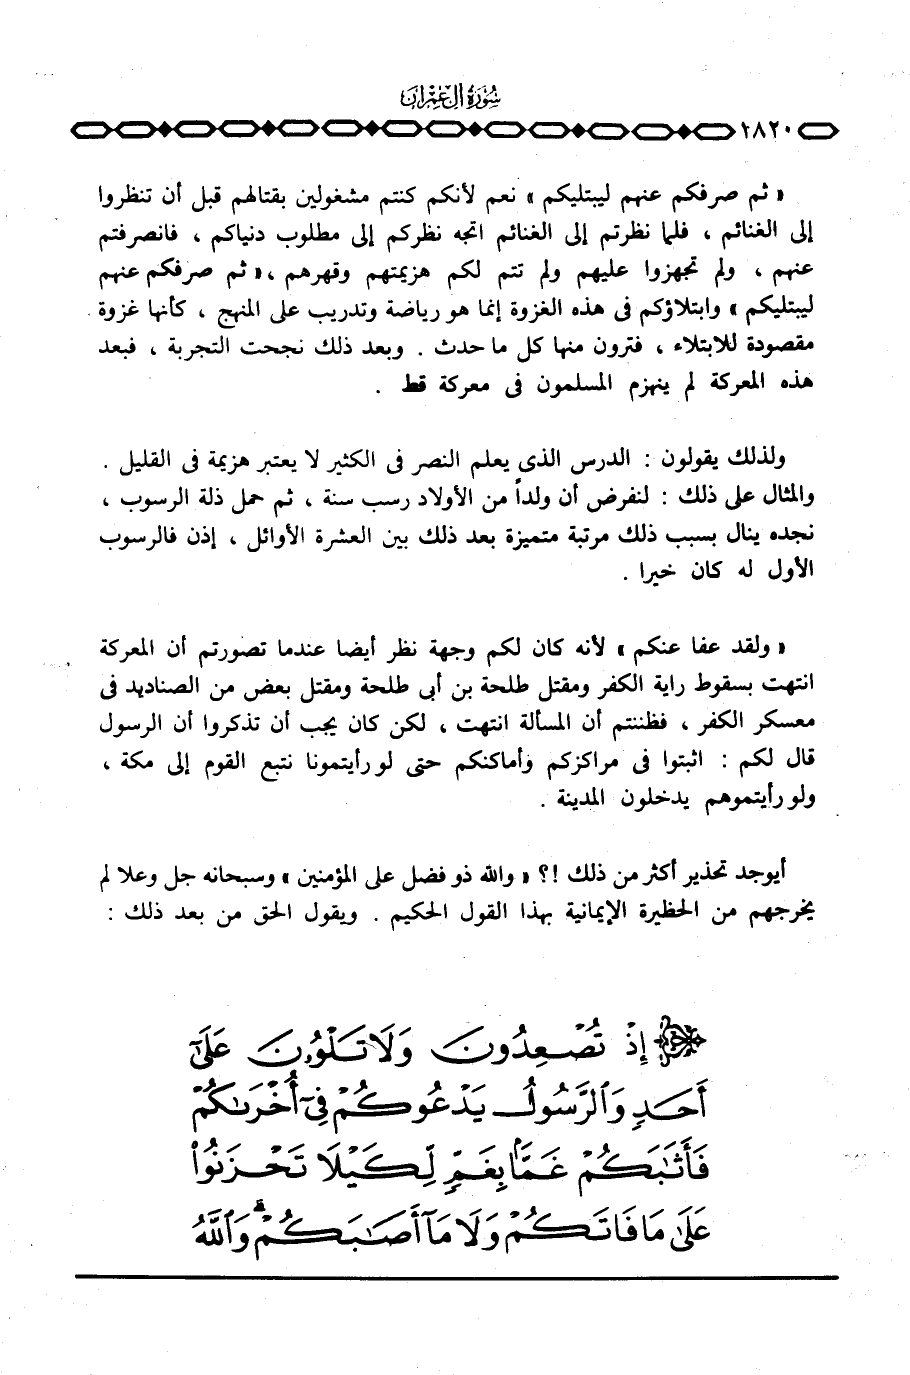 سُورَةُ آلِ عِمْرَانَ
١٨٢٠
« ثم صرفكم عنهم ليبتليكم » نعم لأنكم كنتم مشغولين بقتالهم قبل أن تنظروا
إلى الغنائم ، فلما نظرتم إلى الغنائم اتجه نظركم إلى مطلوب دنياكم ، فانصرفتم
عنهم ، ولم تجهزوا عليهم ولم تتم لكم هزيمتهم وقهرهم ،« ثم صرفكم عنهم
ليبتليكم » وابتلاؤكم فى هذه الغزوة إنما هو رياضة وتدريب على المنهج ، كأنها غزوة
مقصودة للابتلاء ، فترون منها كل ما حدث . وبعد ذلك نجحت التجربة ، فبعد
هذه المعركة لم ينهزم المسلمون فى معركة قط .
ولذلك يقولون : الدرس الذى يعلم النصر فى الكثير لا يعتبر هزيمة فى القليل .
والمثال على ذلك : لنفرض أن ولداً من الأولاد رسب سنة ، ثم حمل ذلة الرسوب ،
نجده ينال بسبب ذلك مرتبة متميزة بعد ذلك بين العشرة الأوائل ، إذن فالرسوب
الأول له كان خيرا .
« ولقد عفا عنكم » لأنه كان لكم وجهة نظر أيضا عندما تصورتم أن المعركة
انتهت بسقوط راية الكفر ومقتل طلحة بن أبى طلحة ومقتل بعض من الصناديد فى
معسكر الكفر ، فظننتم أن المسألة انتهت ، لكن كان يجب أن تذكروا أن الرسول
قال لكم : اثبتوا فى مراكزكم وأماكنكم حتى لو رأيتمونا نتبع القوم إلى مكة ،
ولو رأيتموهم يدخلون المدينة .
أيوجد تحذير أكثر من ذلك !؟ « والله ذو فضل على المؤمنين » وسبحانه جل وعلا لم
يخرجهم من الحظيرة الإيمانية بهذا القول الحكيم . ويقول الحق من بعد ذلك :
۞ إِذْ تُصْعِدُونَ وَلَا تَلْوُۥنَ عَلَىٰٓ
أَحَدٍ وَٱلرَّسُولُ يَدْعُوكُمْ فِىٓ أُخْرَىٰكُمْ
فَأَثَٰبَكُمْ غَمًّۢا بِغَمٍّ لِّكَيْلَا تَحْزَنُوا۟
عَلَىٰ مَا فَاتَكُمْ وَلَا مَآ أَصَٰبَكُمْ ۗ وَٱللَّهُ